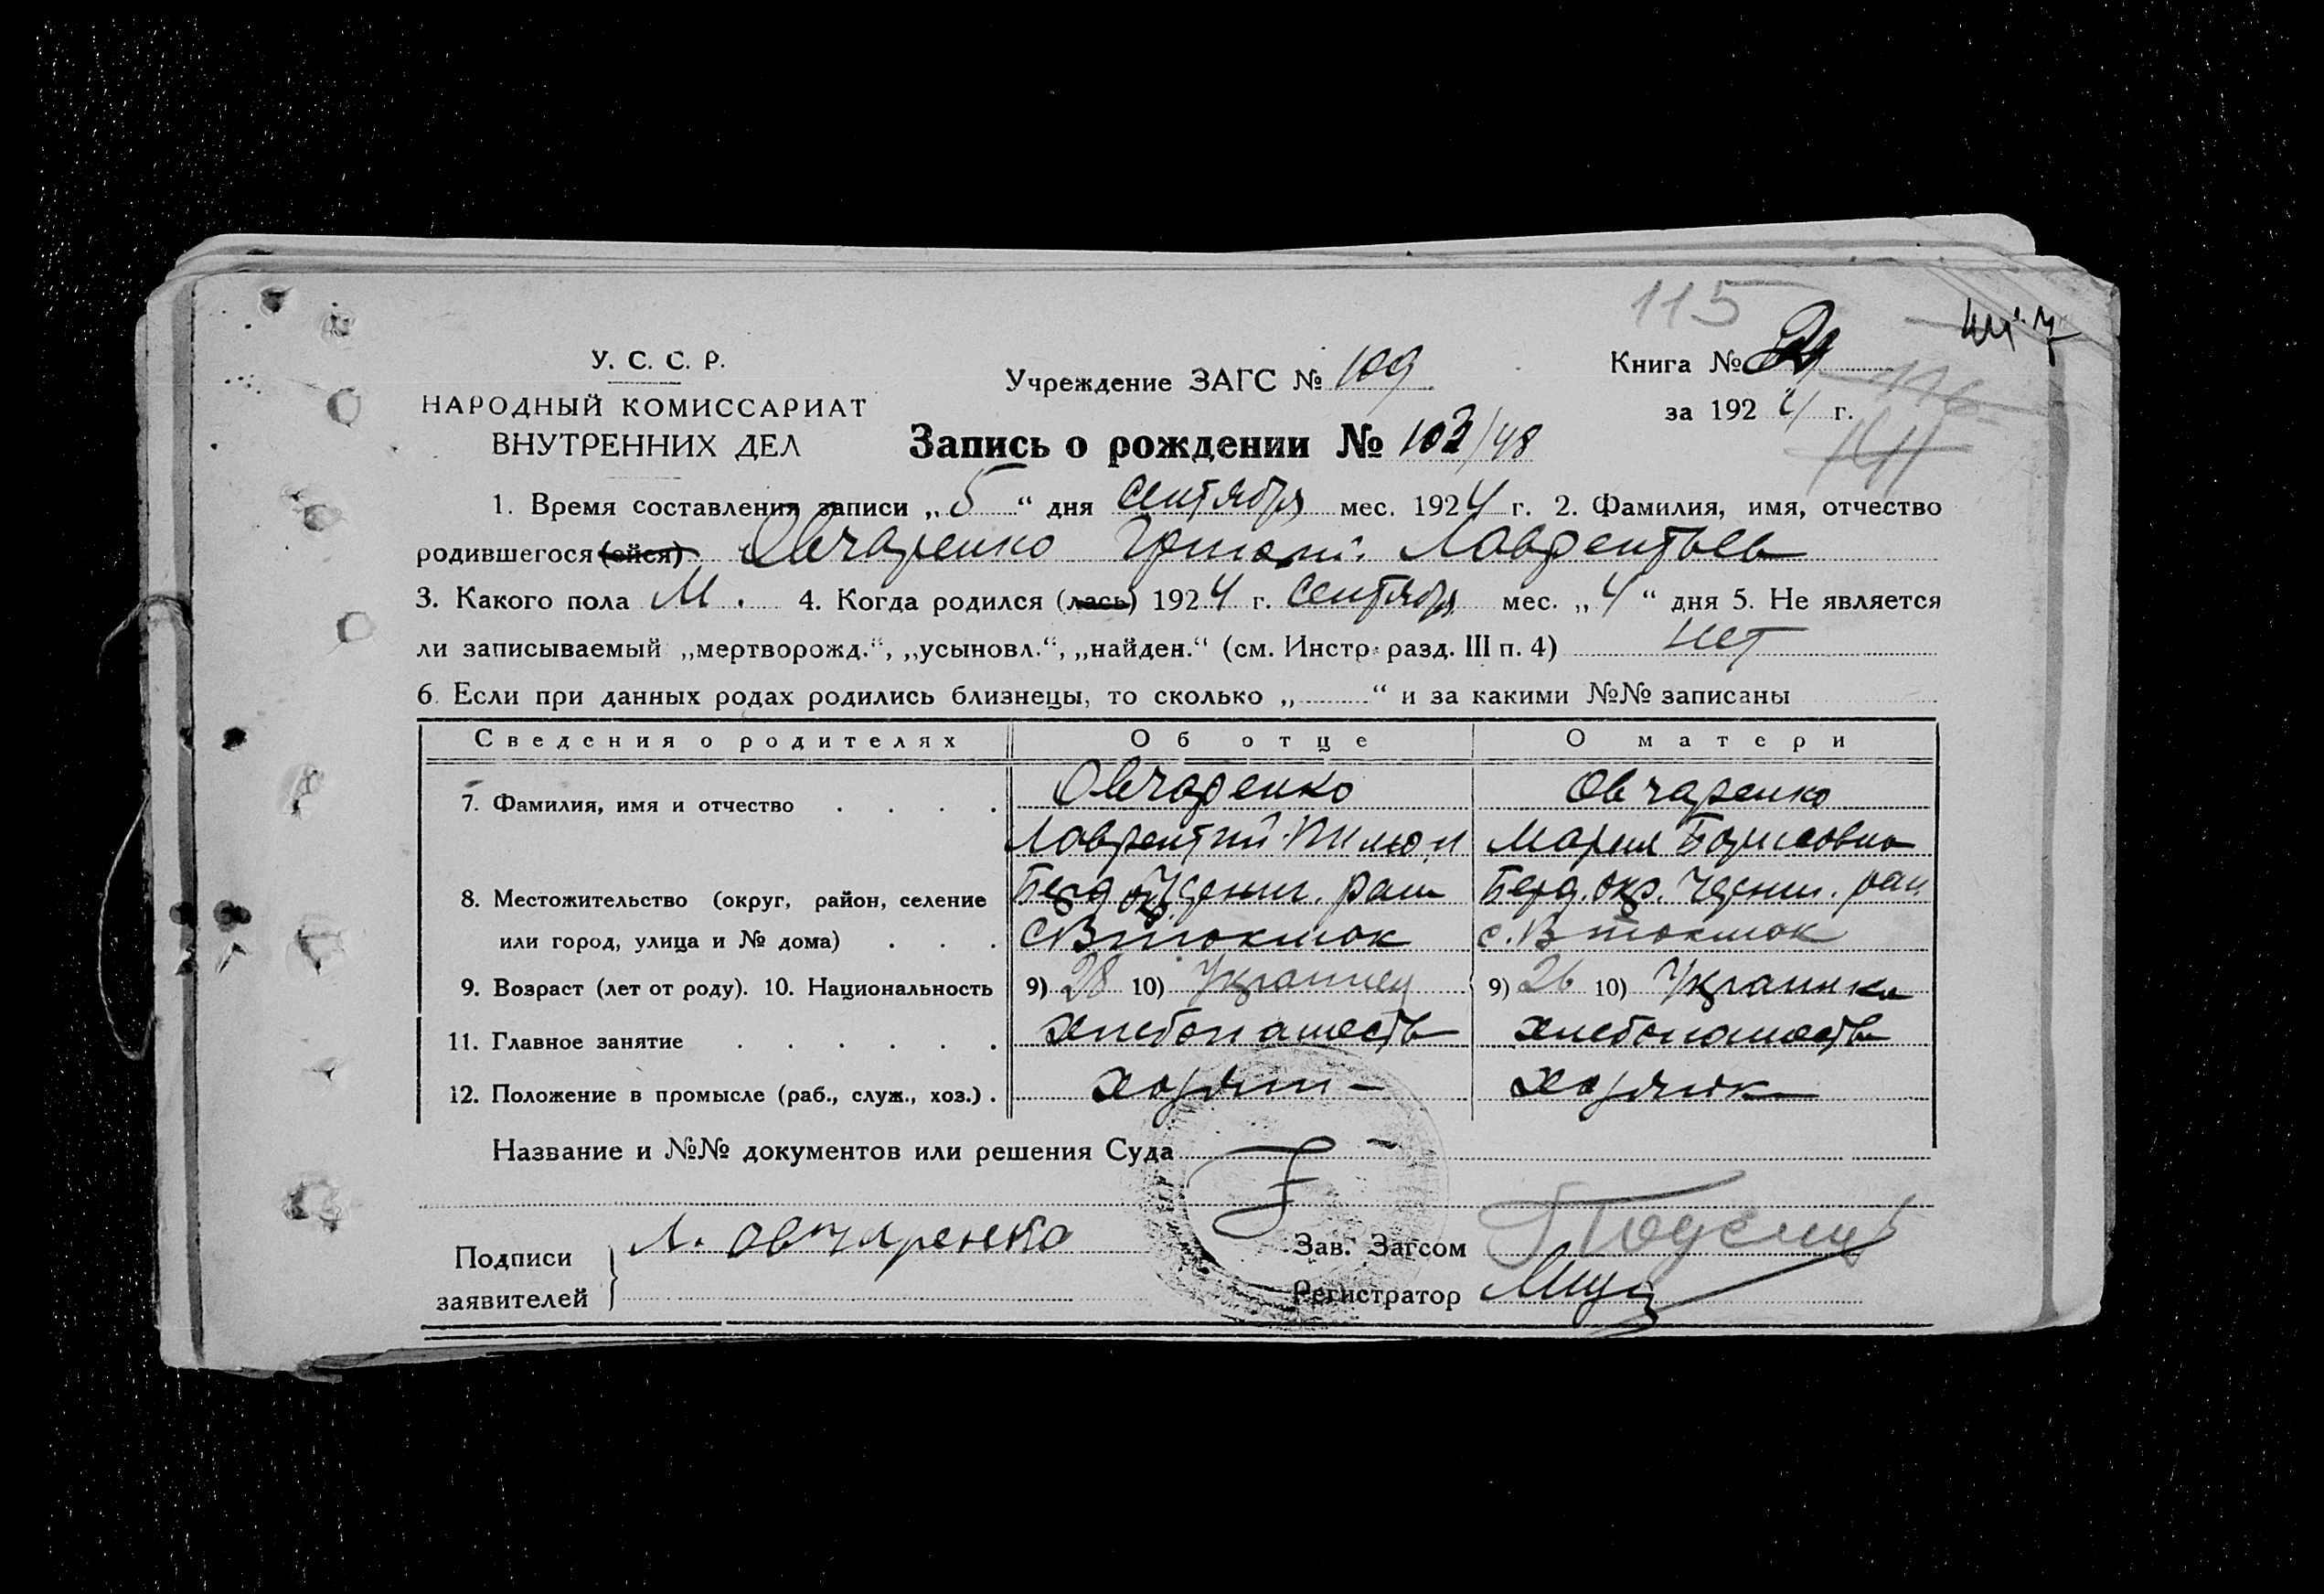 115
У. С. С. Р.
НАРОДНЫЙ КОМИССАРИАТ
ВНУТРЕННИХ ДЕЛ
Учреждение ЗАГС № 109
Книга №
за 1924 г.
116
Запись о рождении № 103/48
1. Время составления записи „5“ дня сентября мес. 1924 г. 2. Фамилия, имя, отчество
родившегося (ейся) Овчаренко Лаврентьев
3. Какого пола М. 4. Когда родился (лась) 1924 г. сентября мес. „4“ дня 5. Не является
ли записываемый „мертворожд.“, „усыновл.“, „найден.“ (см. Инстр. разд. III п. 4) нет
6. Если при данных родах родились близнецы, то сколько „ “ и за какими №№ записаны
Сведения о родителях Об отце О матери
7. Фамилия, имя и отчество Овчаренко Овчаренко
Лаврентий Мария Борисовна
8. Местожительство (округ, район, селение Берд. окр. Берд. окр.
или город, улица и № дома) с. В токмак с. В токмак
9. Возраст (лет от роду). 10. Национальность 9) 28 10) Украинец 9) 26 10) Украинка
11. Главное занятие хлебопашеств хлебопашеств
12. Положение в промысле (раб., служ., хоз.)
Название и №№ документов или решения Суда
Подписи
заявителей
Л. Овчаренко
Зав. Загсом
Регистратор